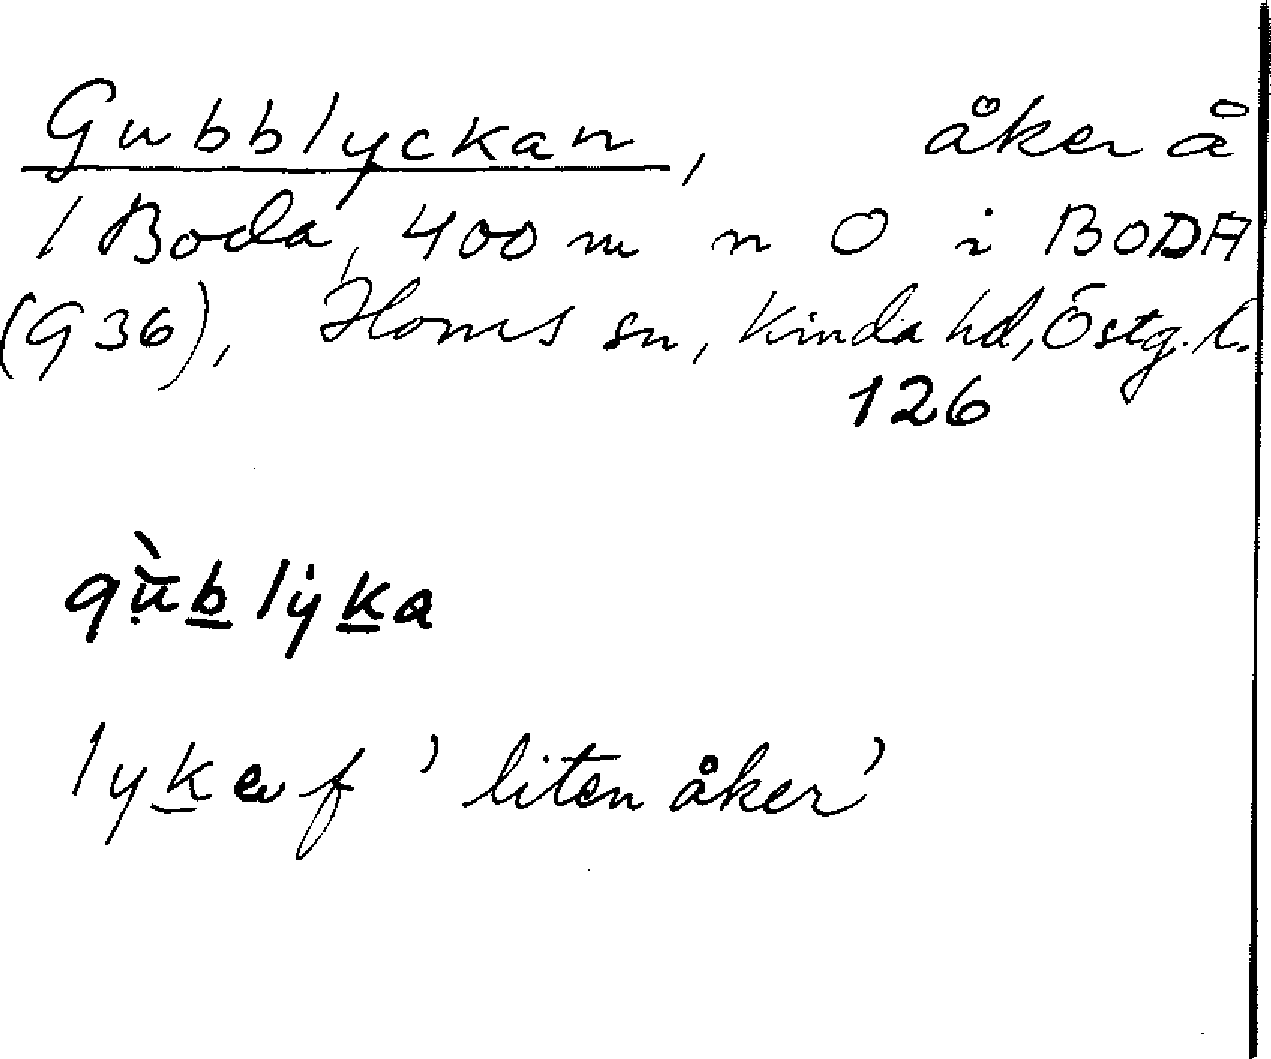 Gubblyckan, åker å
1 Boda, 400 m n O i BODA
(G 36), Horns sn, Kinda hd, Östg. l.
126
gùblẏka
lyka f 'liten åker'